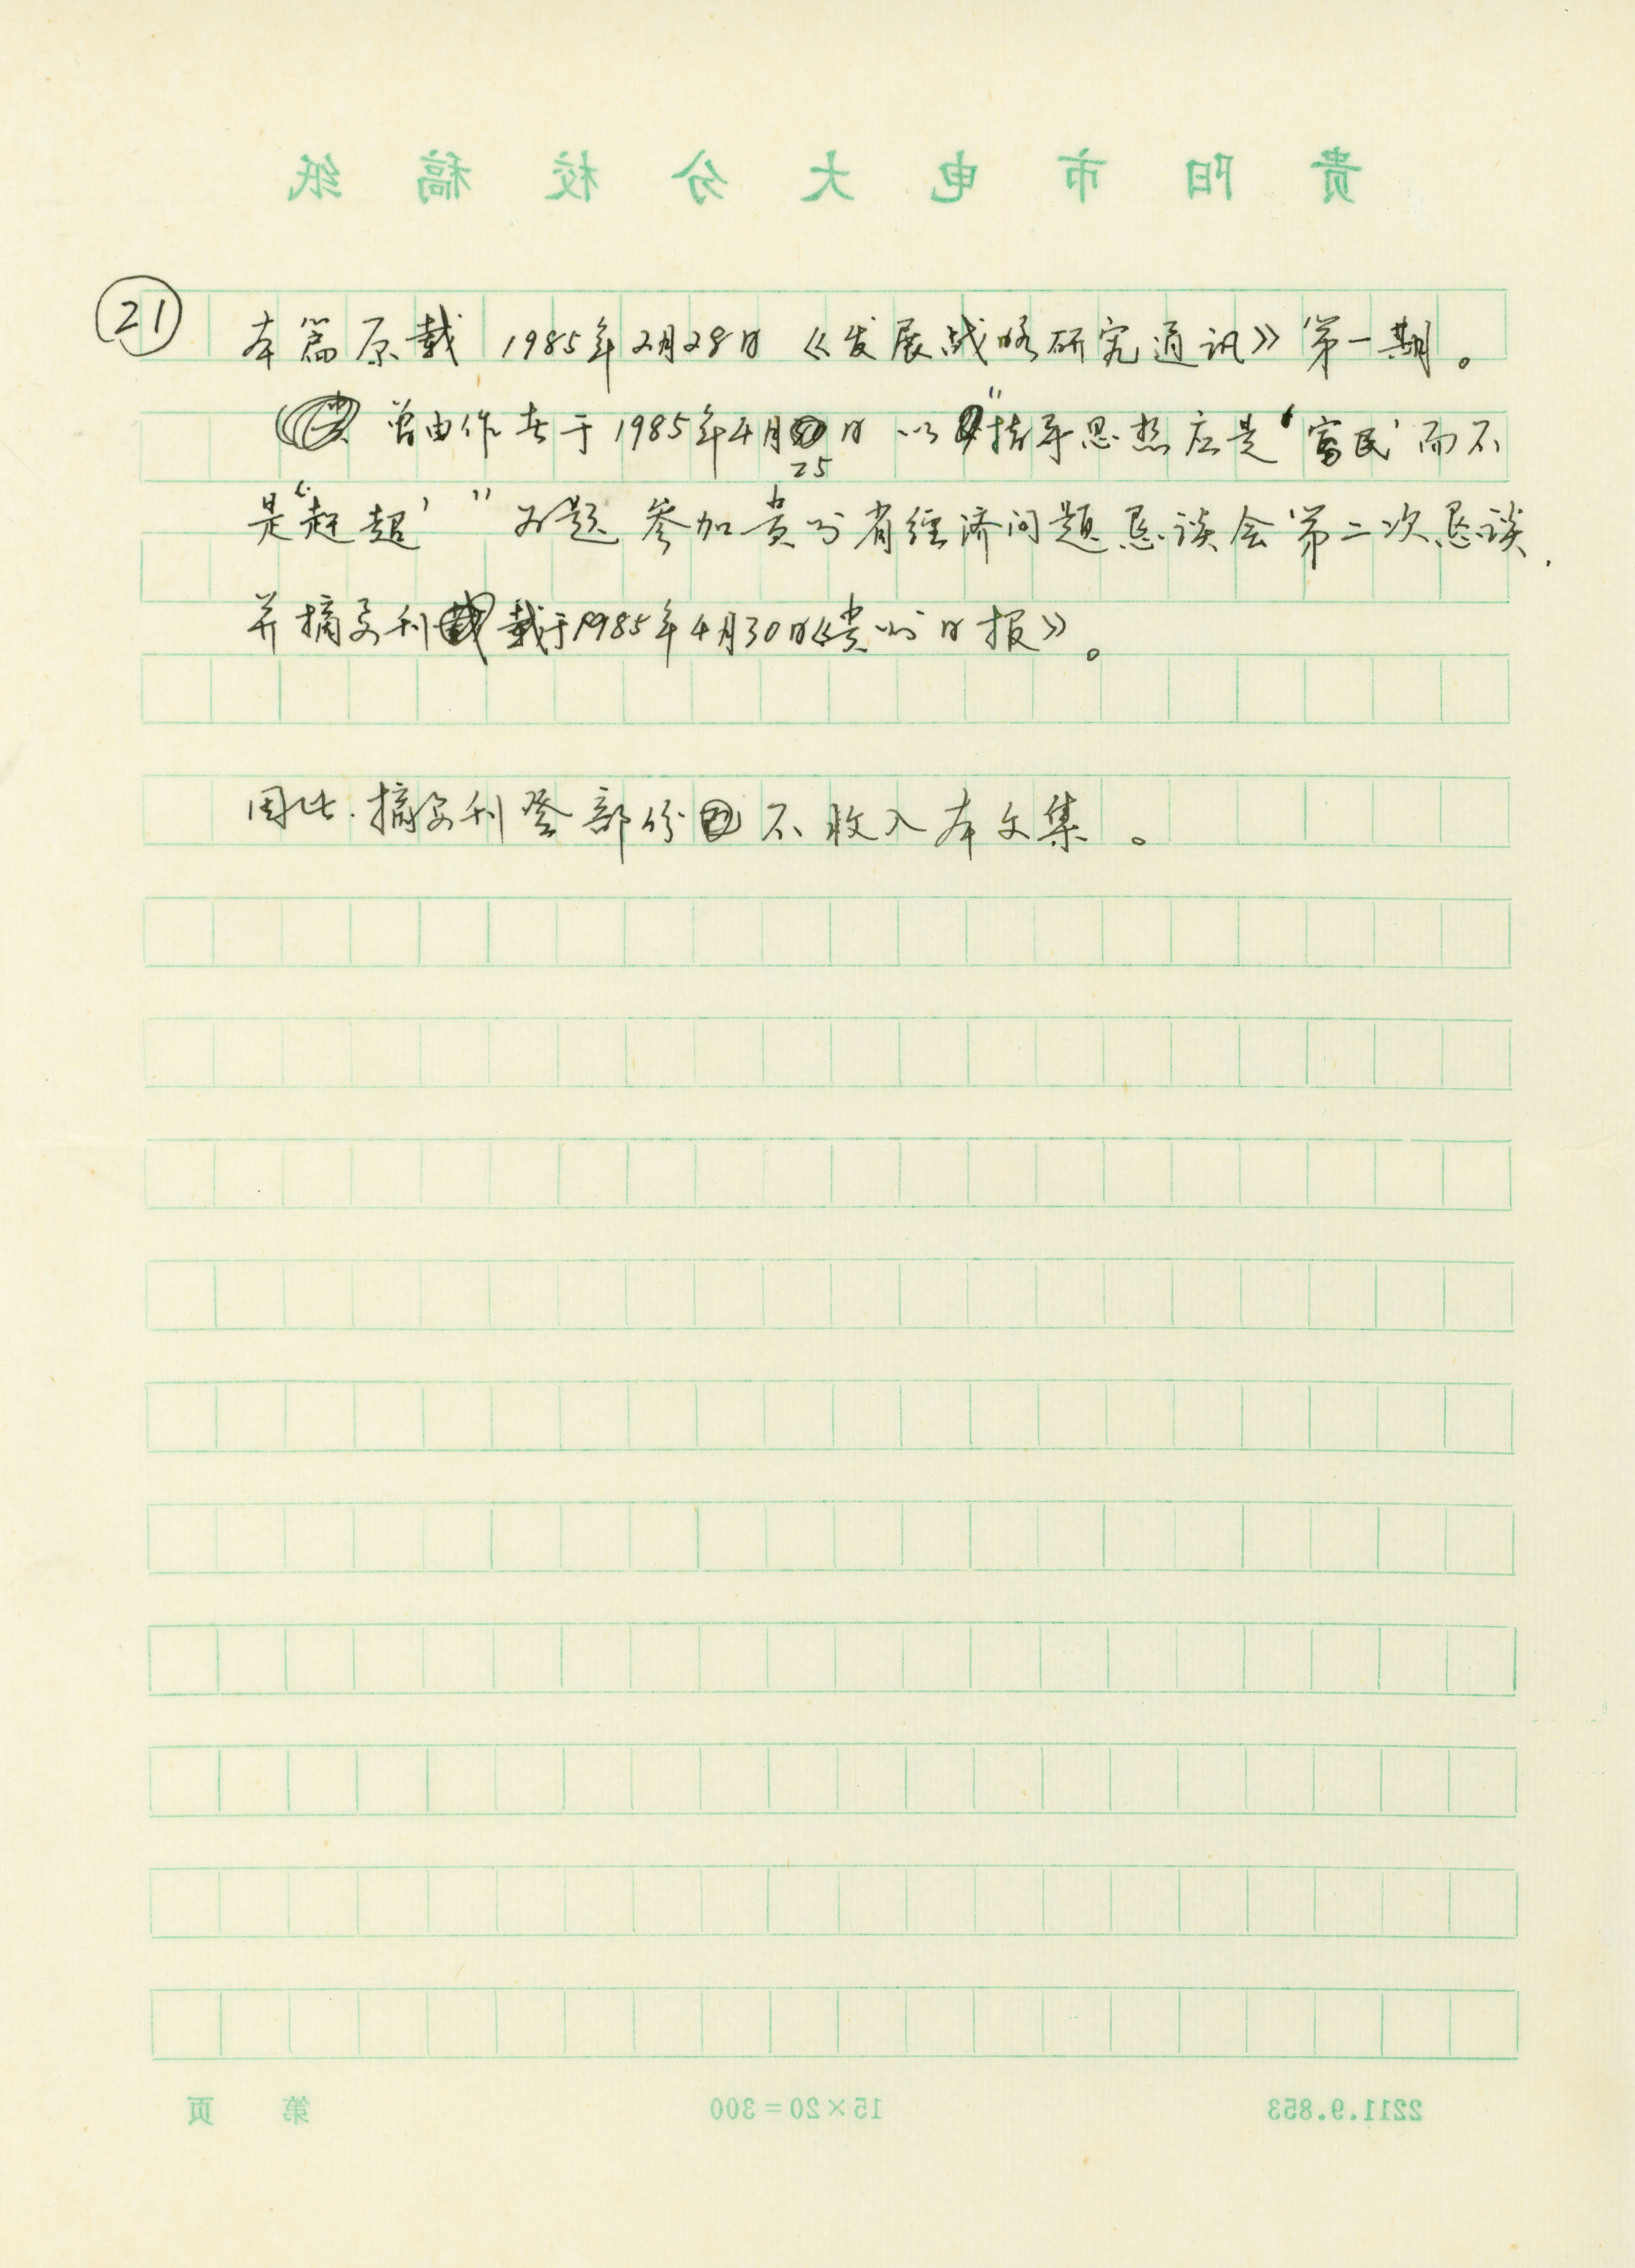 贵阳市电大分校稿纸
㉑ 本篇原载 1985年2月28日《发展战略研究通讯》第一期。
曾由作者于1985年4月25日以"指导思想应是'富民'而不
是'赶超'"为题参加贵州省经济问题恳谈会第二次恳谈.
并摘要刊载于1985年4月30日《贵州日报》。
因此.摘要刊登部份不收入本文集。
第 页 15×20=300 2211.9.853